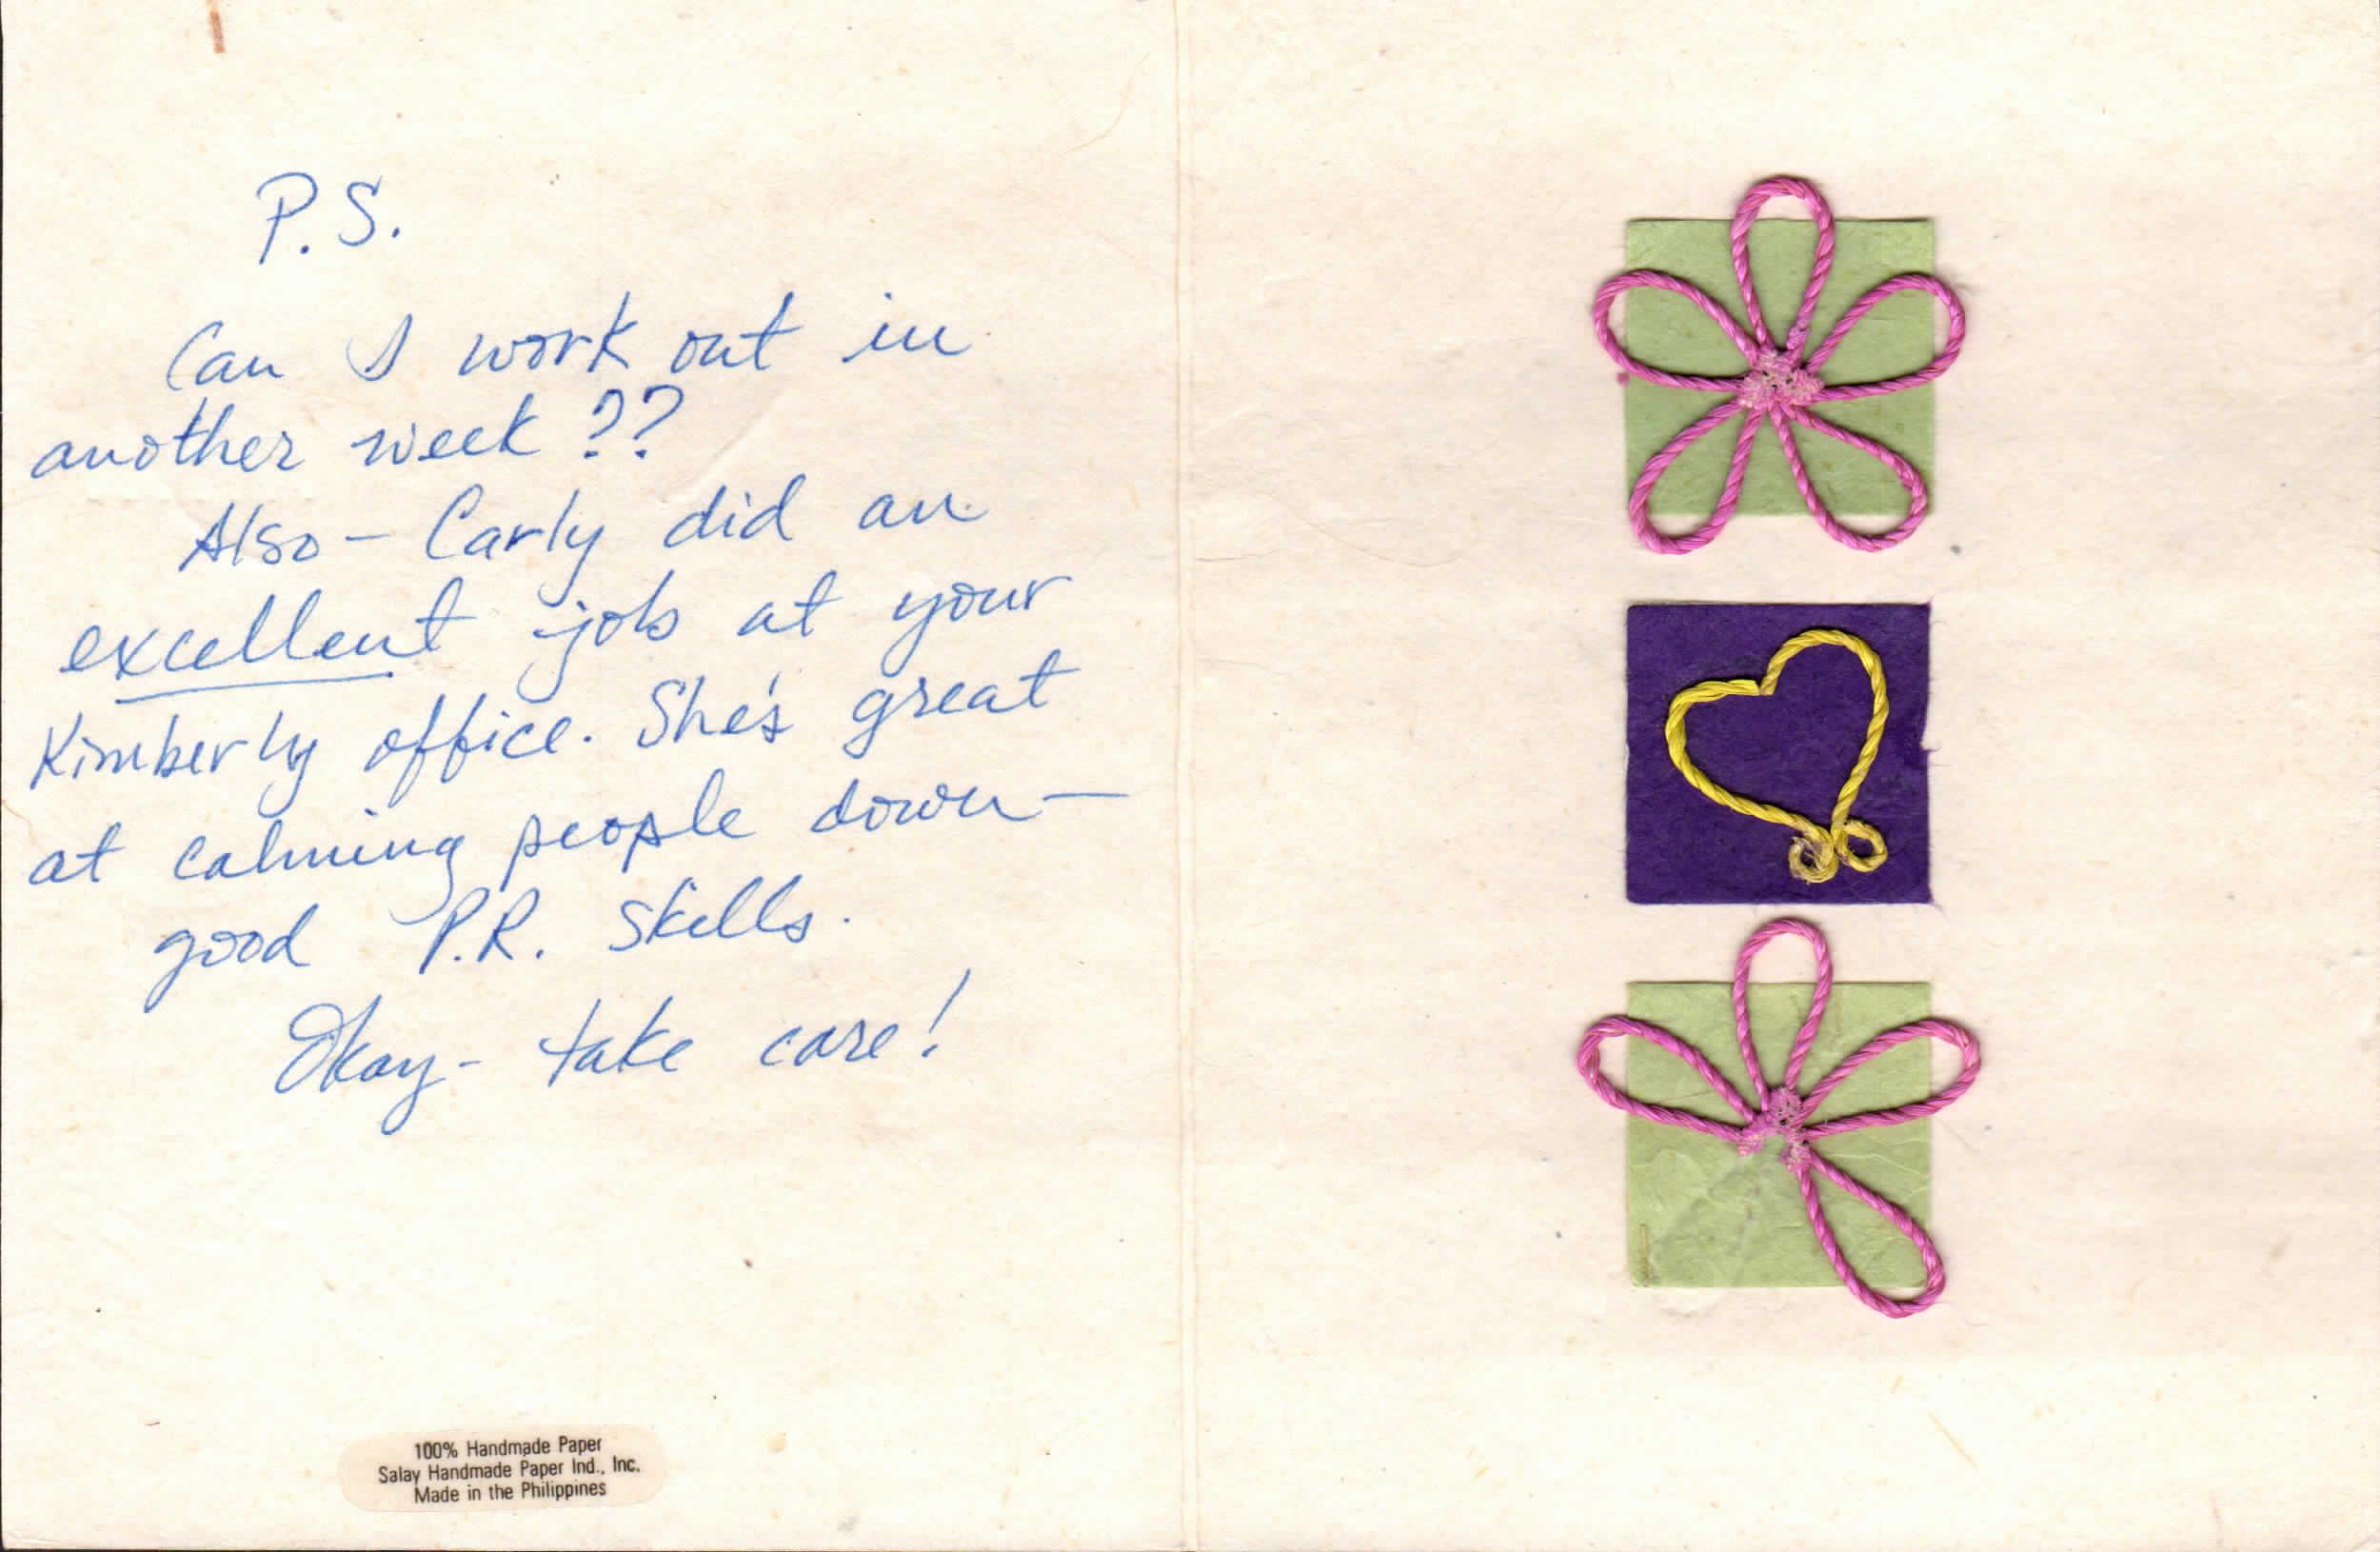 P.S.
Can I work out in
another week??
Also - Carly did an
excellent job at your
Kimberly office. She's great
at calming people down -
good P.R. skills.
Okay - take care!
100% Handmade Paper
Salay Handmade Paper Ind., Inc.
Made in the Philippines